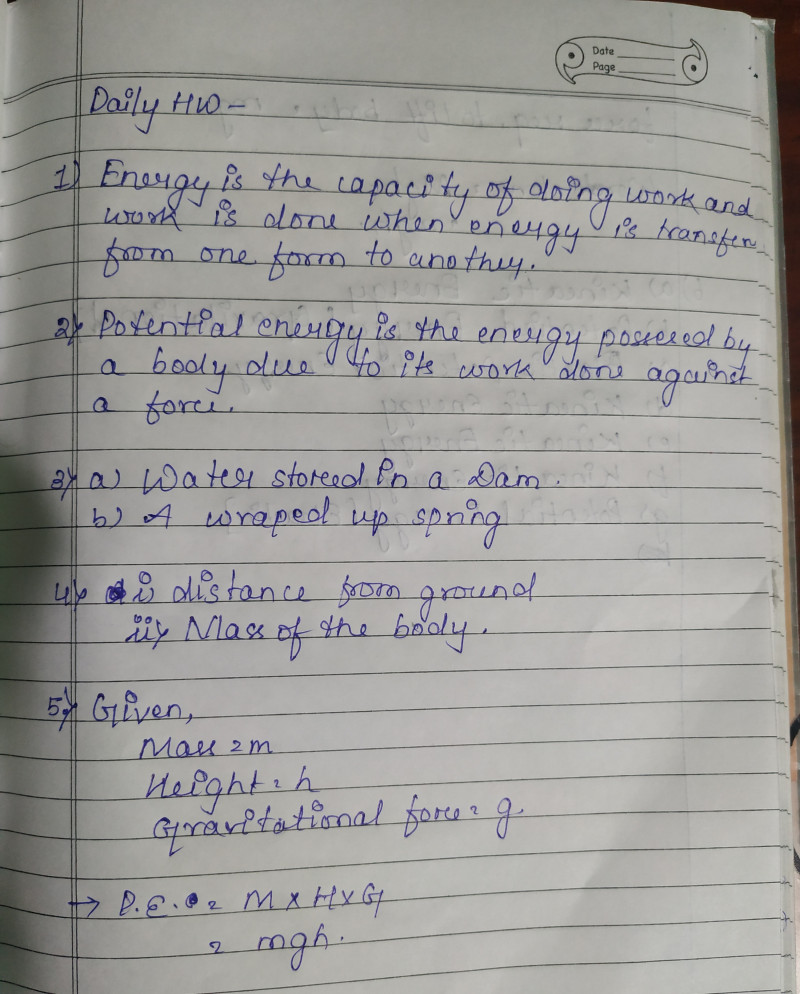 Date
Page
Daily HW –
1) Energy is the capacity of doing work and
work is done when energy is transfer
from one form to another.
2) Potential energy is the energy possessed by
a body due to its work done against
a force.
3) a) Water stored in a Dam.
b) A wraped up spring
4) i) distance from ground
ii) Mass of the body.
5) Given,
Mass = m
Height = h
Gravitational force = g.
→ P.E. = M x H x G
= mgh.